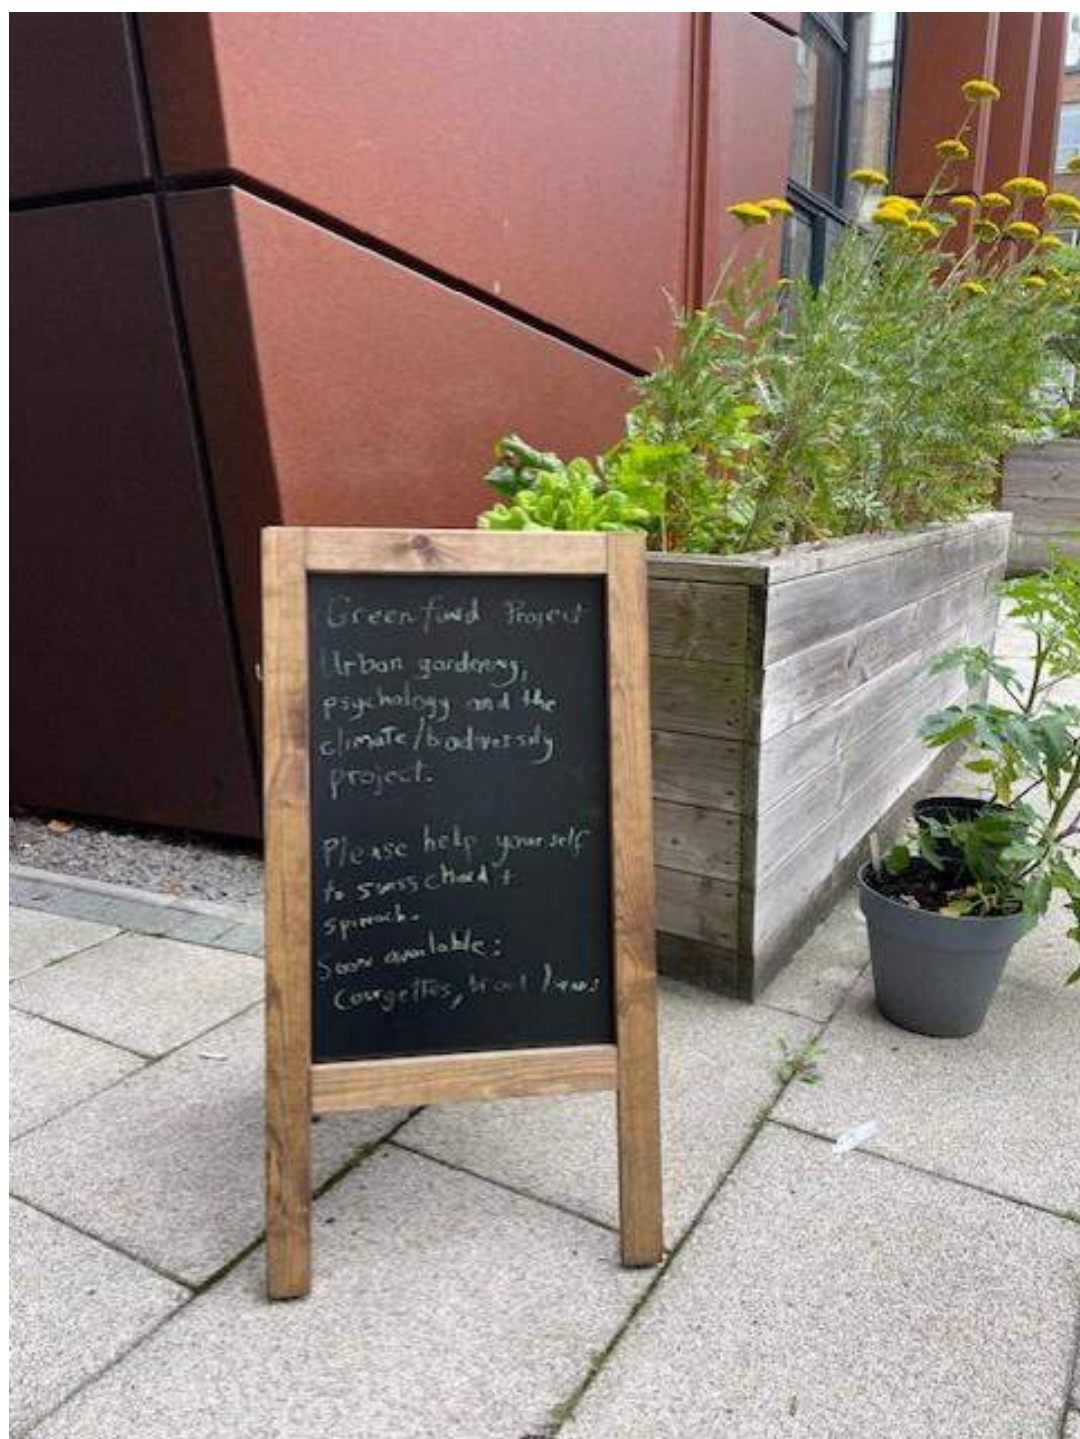 Greenfund Project
Urban gardening,
psychology and the
climate/biodiversity
project.
Please help yourself
to swiss chard +
spinach.
Soon available:
Courgettes, broad beans